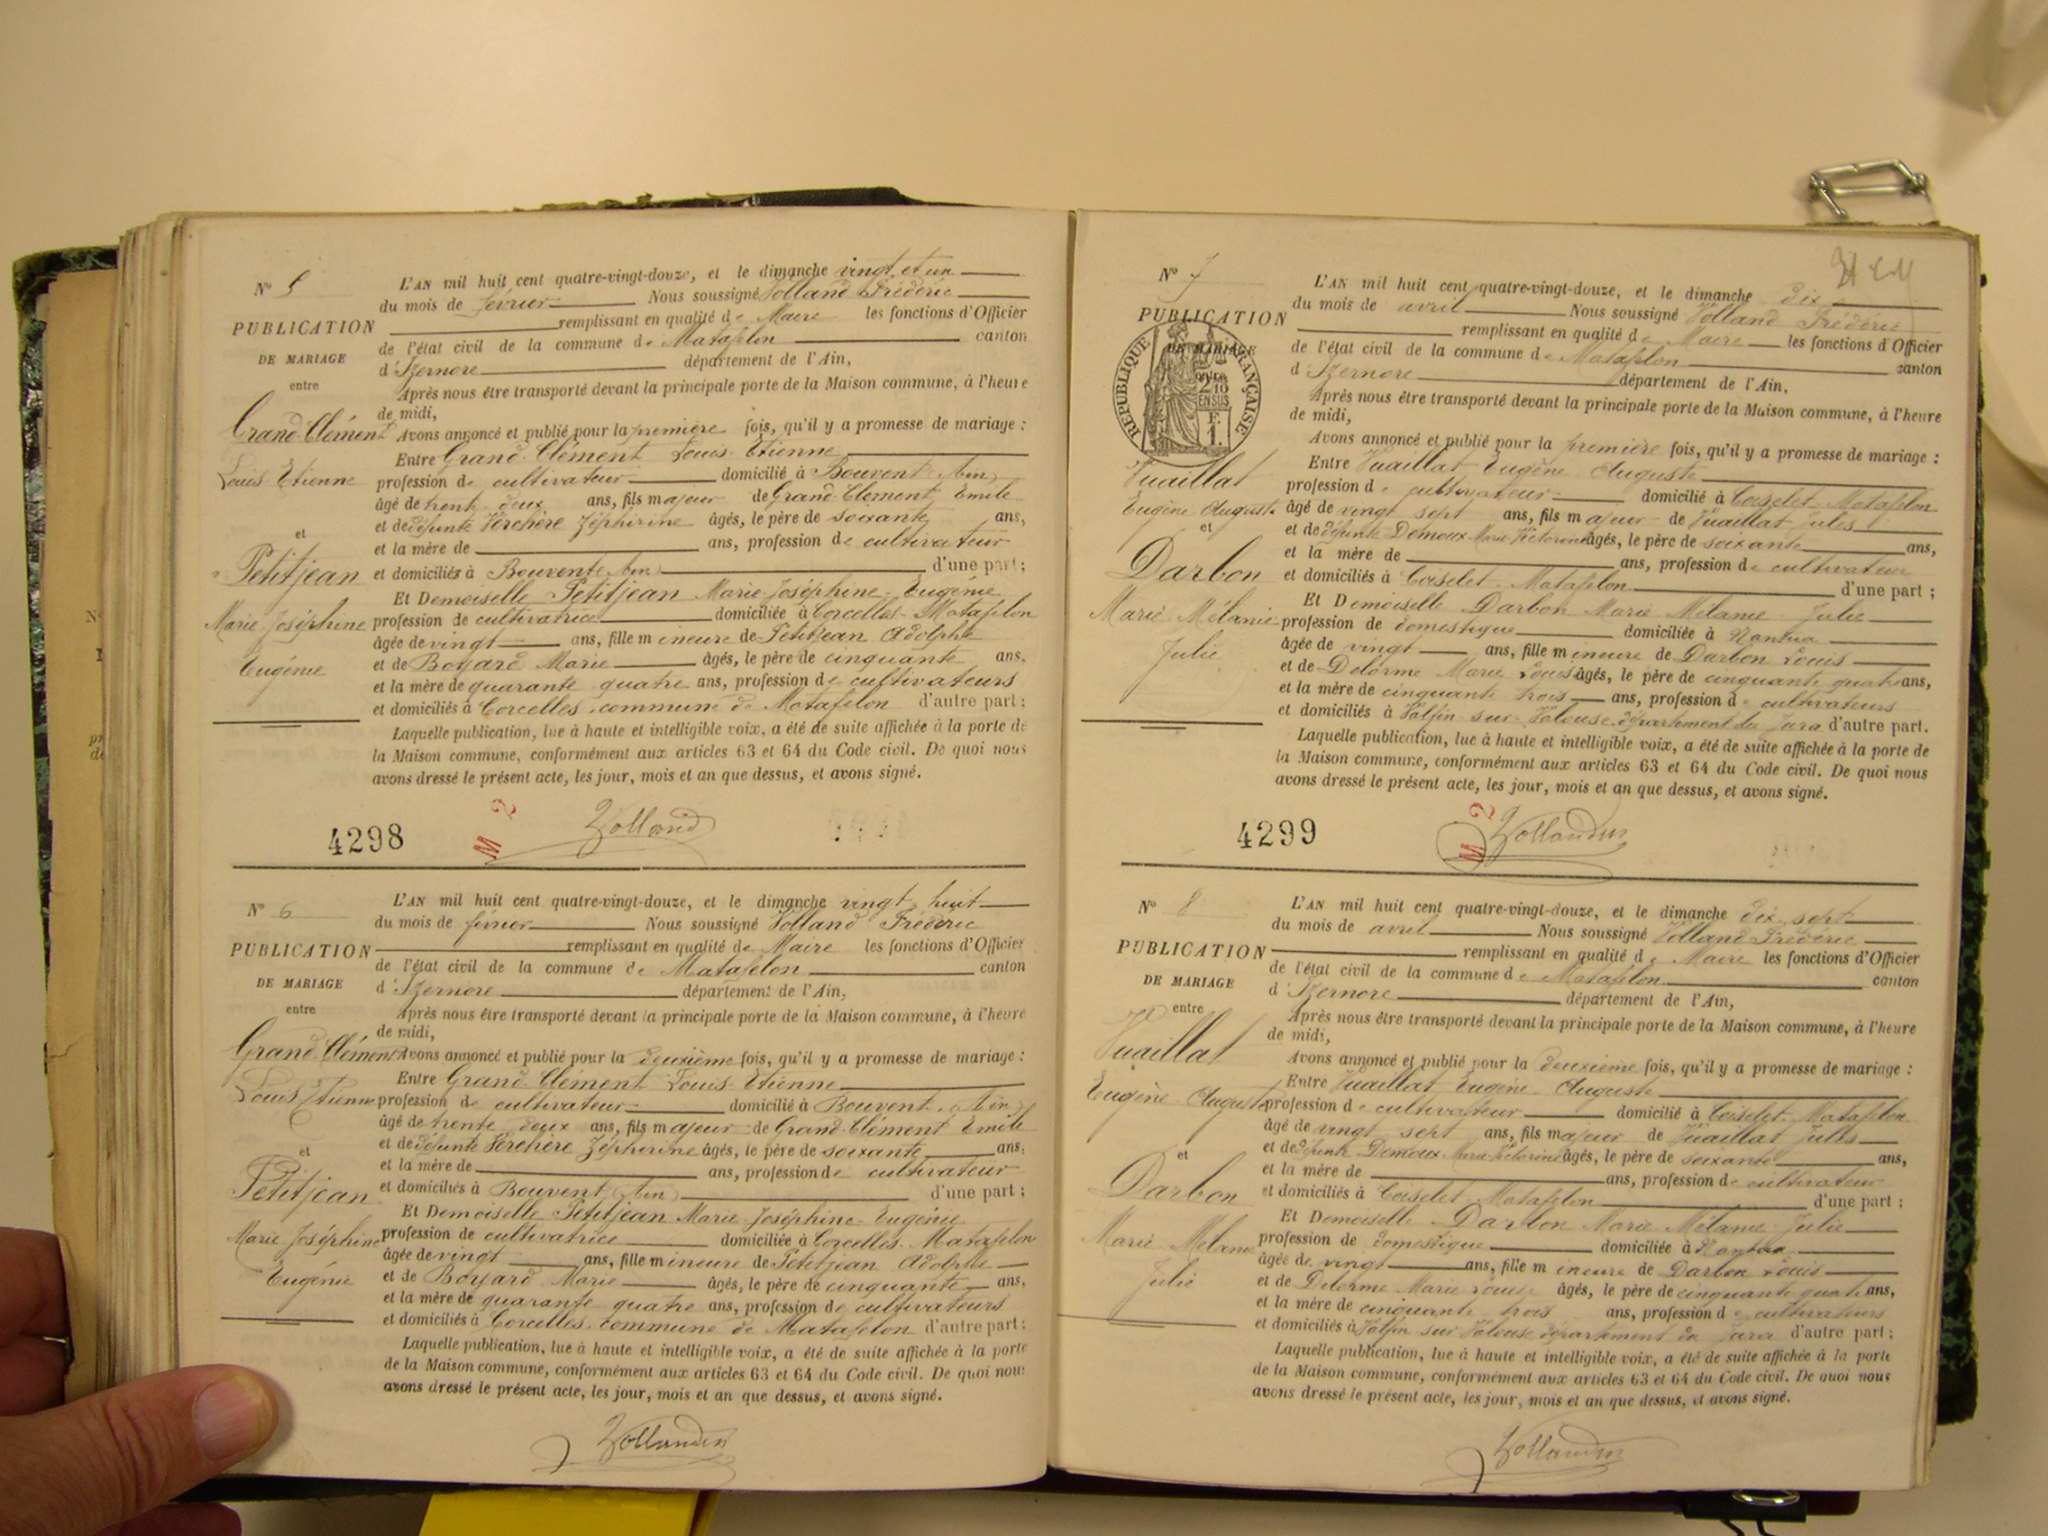 Nº 5
PUBLICATION
DE MARIAGE
entre
Grand-Clément
Louis Etienne
et
Petitjean
Marie Joséphine
Eugénie
L'AN mil huit cent quatre-vingt-douze, et le dimanche vingt et un
du mois de février Nous soussigné Volland Frédéric
remplissant en qualité de Maire les fonctions d'Officier
de l'état civil de la commune de Matafelon canton
d'Izernore département de l'Ain,
Après nous être transporté devant la principale porte de la Maison commune, à l'heure
de midi,
Avons annoncé et publié pour la première fois, qu'il y a promesse de mariage :
Entre Grand-Clément Louis Etienne
profession de cultivateur domicilié à Bouvent (Ain)
âgé de trente deux ans, fils majeur de Grand-Clément Emile
et de défunte Perchère Zéphirine âgés, le père de soixante ans,
et la mère de ans, profession de cultivateur
et domiciliés à Bouvent (Ain) d'une part ;
Et Demoiselle Petitjean Marie-Joséphine-Eugénie
profession de cultivatrice domiciliée à Corcelles-Matafelon
âgée de vingt ans, fille mineure de Petitjean Adolphe
et de Boyard Marie âgés, le père de cinquante ans,
et la mère de quarante quatre ans, profession de cultivateurs
et domiciliés à Corcelles commune de Matafelon d'autre part ;
Laquelle publication, lue à haute et intelligible voix, a été de suite affichée à la porte de
la Maison commune, conformément aux articles 63 et 64 du Code civil. De quoi nous
avons dressé le présent acte, les jour, mois et an que dessus, et avons signé.
4298
M 2
Volland
Nº 6
PUBLICATION
DE MARIAGE
entre
Grand-Clément
Louis Etienne
et
Petitjean
Marie Joséphine
Eugénie
L'AN mil huit cent quatre-vingt-douze, et le dimanche vingt huit
du mois de février Nous soussigné Volland Frédéric
remplissant en qualité de Maire les fonctions d'Officier
de l'état civil de la commune de Matafelon canton
d'Izernore département de l'Ain,
Après nous être transporté devant la principale porte de la Maison commune, à l'heure
de midi,
Avons annoncé et publié pour la deuxième fois, qu'il y a promesse de mariage :
Entre Grand-Clément Louis-Etienne
profession de cultivateur domicilié à Bouvent (Ain)
âgé de trente deux ans, fils majeur de Grand-Clément Emile
et de défunte Perchère Zéphirine âgés, le père de soixante ans,
et la mère de ans, profession de cultivateur
et domiciliés à Bouvent (Ain) d'une part ;
Et Demoiselle Petitjean Marie-Joséphine-Eugénie
profession de cultivatrice domiciliée à Corcelles-Matafelon
âgée de vingt ans, fille mineure de Petitjean Adolphe
et de Boyard Marie âgés, le père de cinquante ans,
et la mère de quarante quatre ans, profession de cultivateurs
et domiciliés à Corcelles commune de Matafelon d'autre part ;
Laquelle publication, lue à haute et intelligible voix, a été de suite affichée à la porte
de la Maison commune, conformément aux articles 63 et 64 du Code civil. De quoi nous
avons dressé le présent acte, les jour, mois et an que dessus, et avons signé.
Nº 7
PUBLICATION
DE MARIAGE
RÉPUBLIQUE FRANÇAISE
2/10
EN SUS
F.
1.
Vuaillat
Eugène Auguste
et
Darbon
Marie Mélanie
Julie
L'AN mil huit cent quatre-vingt-douze, et le dimanche dix
du mois de avril Nous soussigné Volland Frédéric
remplissant en qualité de Maire les fonctions d'Officier
de l'état civil de la commune de Matafelon canton
d'Izernore département de l'Ain,
Après nous être transporté devant la principale porte de la Maison commune, à l'heure
de midi,
Avons annoncé et publié pour la première fois, qu'il y a promesse de mariage :
Entre Vuaillat Eugène Auguste
profession de cultivateur domicilié à Coiselet-Matafelon
âgé de vingt sept ans, fils majeur de Vuaillat Jules
et de défunte Demoux Marie Victorine âgés, le père de soixante ans,
et la mère de ans, profession de cultivateur
et domiciliés à Coiselet-Matafelon d'une part ;
Et Demoiselle Darbon Marie Mélanie Julie
profession de domestique domiciliée à Nantua
âgée de vingt ans, fille mineure de Darbon Louis
et de Delorme Marie Louise âgés, le père de cinquante quatre ans,
et la mère de cinquante trois ans, profession de cultivateurs
et domiciliés à Valfin sur Valouse département du Jura d'autre part.
Laquelle publication, lue à haute et intelligible voix, a été de suite affichée à la porte de
la Maison commune, conformément aux articles 63 et 64 du Code civil. De quoi nous
avons dressé le présent acte, les jour, mois et an que dessus, et avons signé.
4299
M 2
Nº 8
PUBLICATION
DE MARIAGE
entre
Vuaillat
Eugène Auguste
et
Darbon
Marie Mélanie
Julie
L'AN mil huit cent quatre-vingt-douze, et le dimanche dix sept
du mois de avril Nous soussigné Volland Frédéric
remplissant en qualité de Maire les fonctions d'Officier
de l'état civil de la commune de Matafelon canton
d'Izernore département de l'Ain,
Après nous être transporté devant la principale porte de la Maison commune, à l'heure
de midi,
Avons annoncé et publié pour la deuxième fois, qu'il y a promesse de mariage :
Entre Vuaillat Eugène Auguste
profession de cultivateur domicilié à Coiselet-Matafelon
âgé de vingt sept ans, fils majeur de Vuaillat Jules
et de défunte Demoux Marie Victorine âgés, le père de soixante ans,
et la mère de ans, profession de cultivateur
et domiciliés à Coiselet-Matafelon d'une part ;
Et Demoiselle Darbon Marie Mélanie Julie
profession de domestique domiciliée à Nantua
âgée de vingt ans, fille mineure de Darbon Louis
et de Delorme Marie Louise âgés, le père de cinquante quatre ans,
et la mère de cinquante trois ans, profession de cultivateurs
et domiciliés à Valfin sur Valouse département du Jura d'autre part ;
Laquelle publication, lue à haute et intelligible voix, a été de suite affichée à la porte
de la Maison commune, conformément aux articles 63 et 64 du Code civil. De quoi nous
avons dressé le présent acte, les jour, mois et an que dessus, et avons signé.